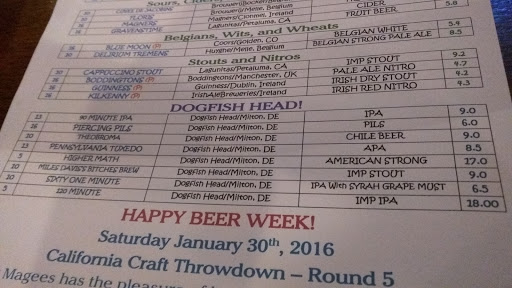 Sours, Cide
CUVEE DE JACOBINS Brouwerij Bockor/Be
FLORIS Huyghe/Melle, Belgium
MAGNERS Magners/Clonmel, Ireland CIDER 5.8
GRAVENSTIME Lagunitas/Petaluma, CA FRUIT BEER
Belgians, Wits, and Wheats
16 BLUE MOON (P) Coors/Golden, CO BELGIAN WHITE 5.4
10 DELIRIUM TREMENS Huyghe/Melle, Belgium BELGIAN STRONG PALE ALE 8.5
Stouts and Nitros
10 CAPPUCCINO STOUT Lagunitas/Petaluma, CA IMP STOUT 9.2
16 BODDINGTONS (P) Boddingtons/Manchester, UK PALE ALE NITRO 4.7
16 GUINNESS (P) Guinness/Dublin, Ireland IRISH DRY STOUT 4.2
16 KILKENNY (P) IrishAleBreweries/Ireland IRISH RED NITRO 4.3
DOGFISH HEAD!
13 90 MINUTE IPA Dogfish Head/Milton, DE IPA 9.0
16 PIERCING PILS Dogfish Head/Milton, DE PILS 6.0
10 THEOBROMA Dogfish Head/Milton, DE CHILE BEER 9.0
13 PENNSYLVANIA TUXEDO Dogfish Head/Milton, DE APA 8.5
5 HIGHER MATH Dogfish Head/Milton, DE AMERICAN STRONG 17.0
10 MILES DAVIS'S BITCHES BREW Dogfish Head/Milton, DE IMP STOUT 9.0
10 SIXTY ONE MINUTE Dogfish Head/Milton, DE IPA With SYRAH GRAPE MUST 6.5
5 120 MINUTE Dogfish Head/Milton, DE IMP IPA 18.00
HAPPY BEER WEEK!
Saturday January 30th, 2016
California Craft Throwdown – Round 5
Magees has the pleasure of